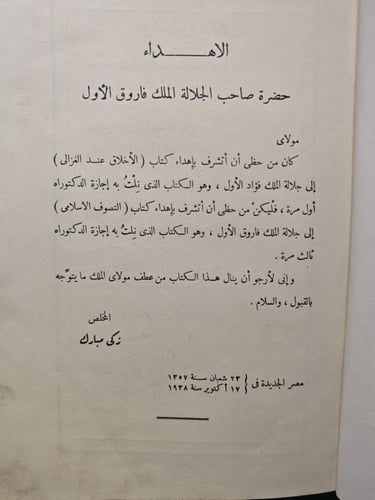 الإهـــداء
حضرة صاحب الجلالة الملك فاروق الأول
مولاى
كان من حظى أن أتشرف بإهداء كتاب ( الأخلاق عند الغزالى )
إلى جلالة الملك فؤاد الأول ، وهو الكتاب الذى نِلْتُ به إجازة الدكتوراه
أول مرة ، فليكن من حظى أن أتشرف بإهداء كتاب ( التصوف الاسلامى )
إلى جلالة الملك فاروق الأول ، وهو الكتاب الذى نِلتُ به إجازة الدكتوراه
ثالث مرة .
وإنى لأرجو أن ينال هذا الكتاب من عطف مولاى الملك ما يتوِّجه
بالقبول ، والسلام .
المخلص
زكى مبارك
مصر الجديدة فى { ٢٣ شعبان سنة ١٣٥٧
١٧ أكتوبر سنة ١٩٣٨ }